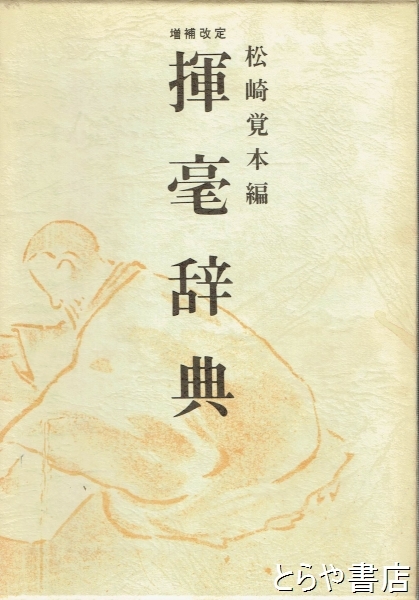 松崎覚本編
増補改定
揮毫辞典
とらや書店